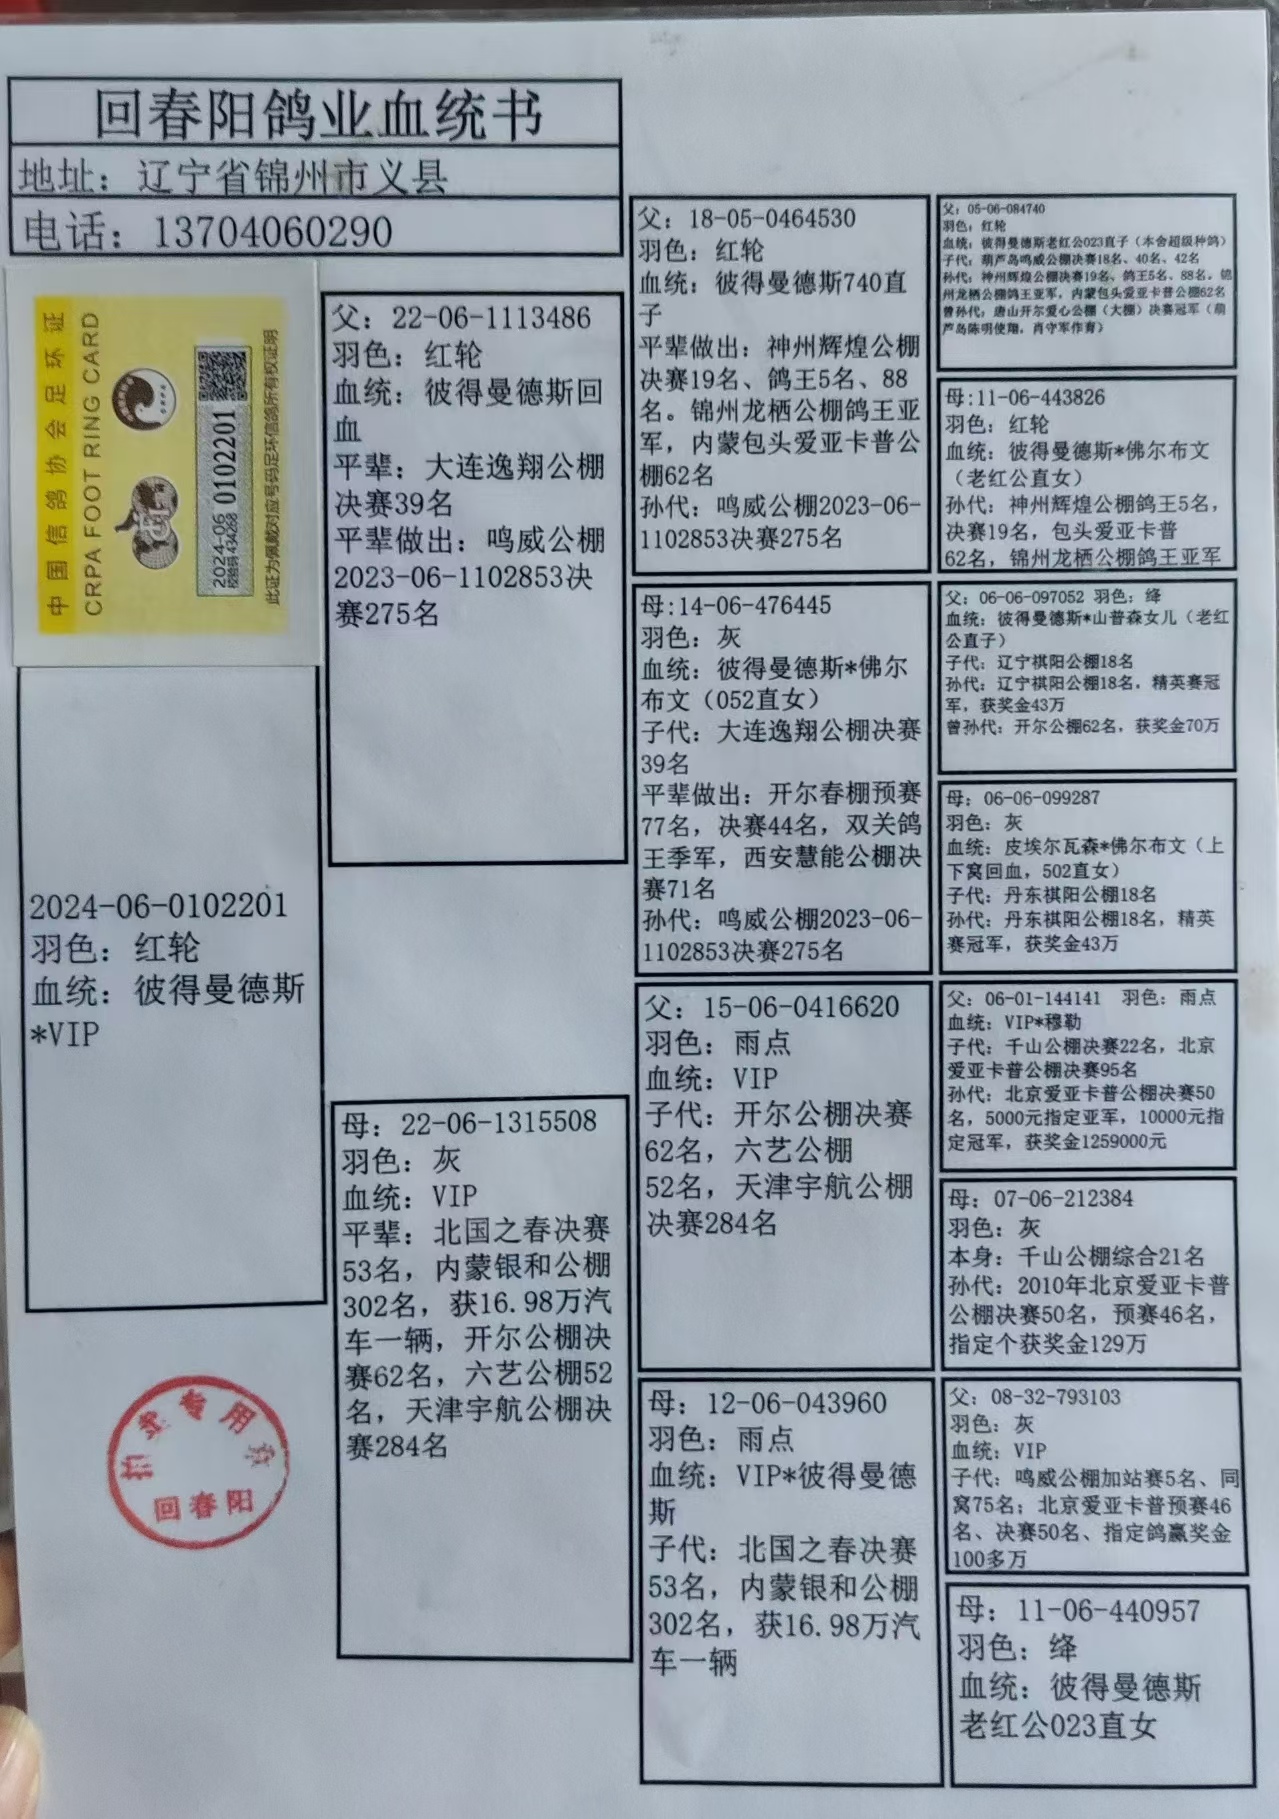 回春阳鸽业血统书
地址：辽宁省锦州市义县
电话：13704060290
中国信鸽协会足环证
CRPA FOOT RING CARD
2024-06 0102201
校验码 434268
此证为佩戴对应号码足环信鸽所有权证明
2024-06-0102201
羽色：红轮
血统：彼得曼德斯
*VIP
专用
回春阳
父：22-06-1113486
羽色：红轮
血统：彼得曼德斯回
血
平辈：大连逸翔公棚
决赛39名
平辈做出：鸣威公棚
2023-06-1102853决
赛275名
母：22-06-1315508
羽色：灰
血统：VIP
平辈：北国之春决赛
53名，内蒙银和公棚
302名，获16.98万汽
车一辆，开尔公棚决
赛62名，六艺公棚52
名，天津宇航公棚决
赛284名
父：18-05-0464530
羽色：红轮
血统：彼得曼德斯740直
子
平辈做出：神州辉煌公棚
决赛19名、鸽王5名、88
名。锦州龙栖公棚鸽王亚
军，内蒙包头爱亚卡普公
棚62名
孙代：鸣威公棚2023-06-
1102853决赛275名
母:14-06-476445
羽色：灰
血统：彼得曼德斯*佛尔
布文（052直女）
子代：大连逸翔公棚决赛
39名
平辈做出：开尔春棚预赛
77名，决赛44名，双关鸽
王季军，西安慧能公棚决
赛71名
孙代：鸣威公棚2023-06-
1102853决赛275名
父：15-06-0416620
羽色：雨点
血统：VIP
子代：开尔公棚决赛
62名，六艺公棚
52名，天津宇航公棚
决赛284名
母：12-06-043960
羽色：雨点
血统：VIP*彼得曼德
斯
子代：北国之春决赛
53名，内蒙银和公棚
302名，获16.98万汽
车一辆
父：05-06-084740
羽色：红轮
血统：彼得曼德斯老红公023直子（本舍超级种鸽）
子代：葫芦岛鸣威公棚决赛18名、40名、42名
孙代：神州辉煌公棚决赛19名、鸽王5名、88名。锦
州龙栖公棚鸽王亚军，内蒙包头爱亚卡普公棚62名
曾孙代：唐山开尔爱心公棚（大棚）决赛冠军（葫
芦岛陈明使翔，肖守军作育）
母:11-06-443826
羽色：红轮
血统：彼得曼德斯*佛尔布文
（老红公直女）
孙代：神州辉煌公棚鸽王5名，
决赛19名，包头爱亚卡普
62名，锦州龙栖公棚鸽王亚军
父：06-06-097052 羽色：绛
血统：彼得曼德斯*山普森女儿（老红
公直子）
子代：辽宁祺阳公棚18名
孙代：辽宁祺阳公棚18名，精英赛冠
军，获奖金43万
曾孙代：开尔公棚62名，获奖金70万
母：06-06-099287
羽色：灰
血统：皮埃尔瓦森*佛尔布文（上
下窝回血，502直女）
子代：丹东祺阳公棚18名
孙代：丹东祺阳公棚18名，精英
赛冠军，获奖金43万
父：06-01-144141 羽色：雨点
血统：VIP*穆勒
子代：千山公棚决赛22名，北京
爱亚卡普公棚决赛95名
孙代：北京爱亚卡普公棚决赛50
名，5000元指定亚军，10000元指
定冠军，获奖金1259000元
母：07-06-212384
羽色：灰
本身：千山公棚综合21名
孙代：2010年北京爱亚卡普
公棚决赛50名，预赛46名，
指定个获奖金129万
父：08-32-793103
羽色：灰
血统：VIP
子代：鸣威公棚加站赛5名、同
窝75名；北京爱亚卡普预赛46
名、决赛50名、指定鸽赢奖金
100多万
母：11-06-440957
羽色：绛
血统：彼得曼德斯
老红公023直女